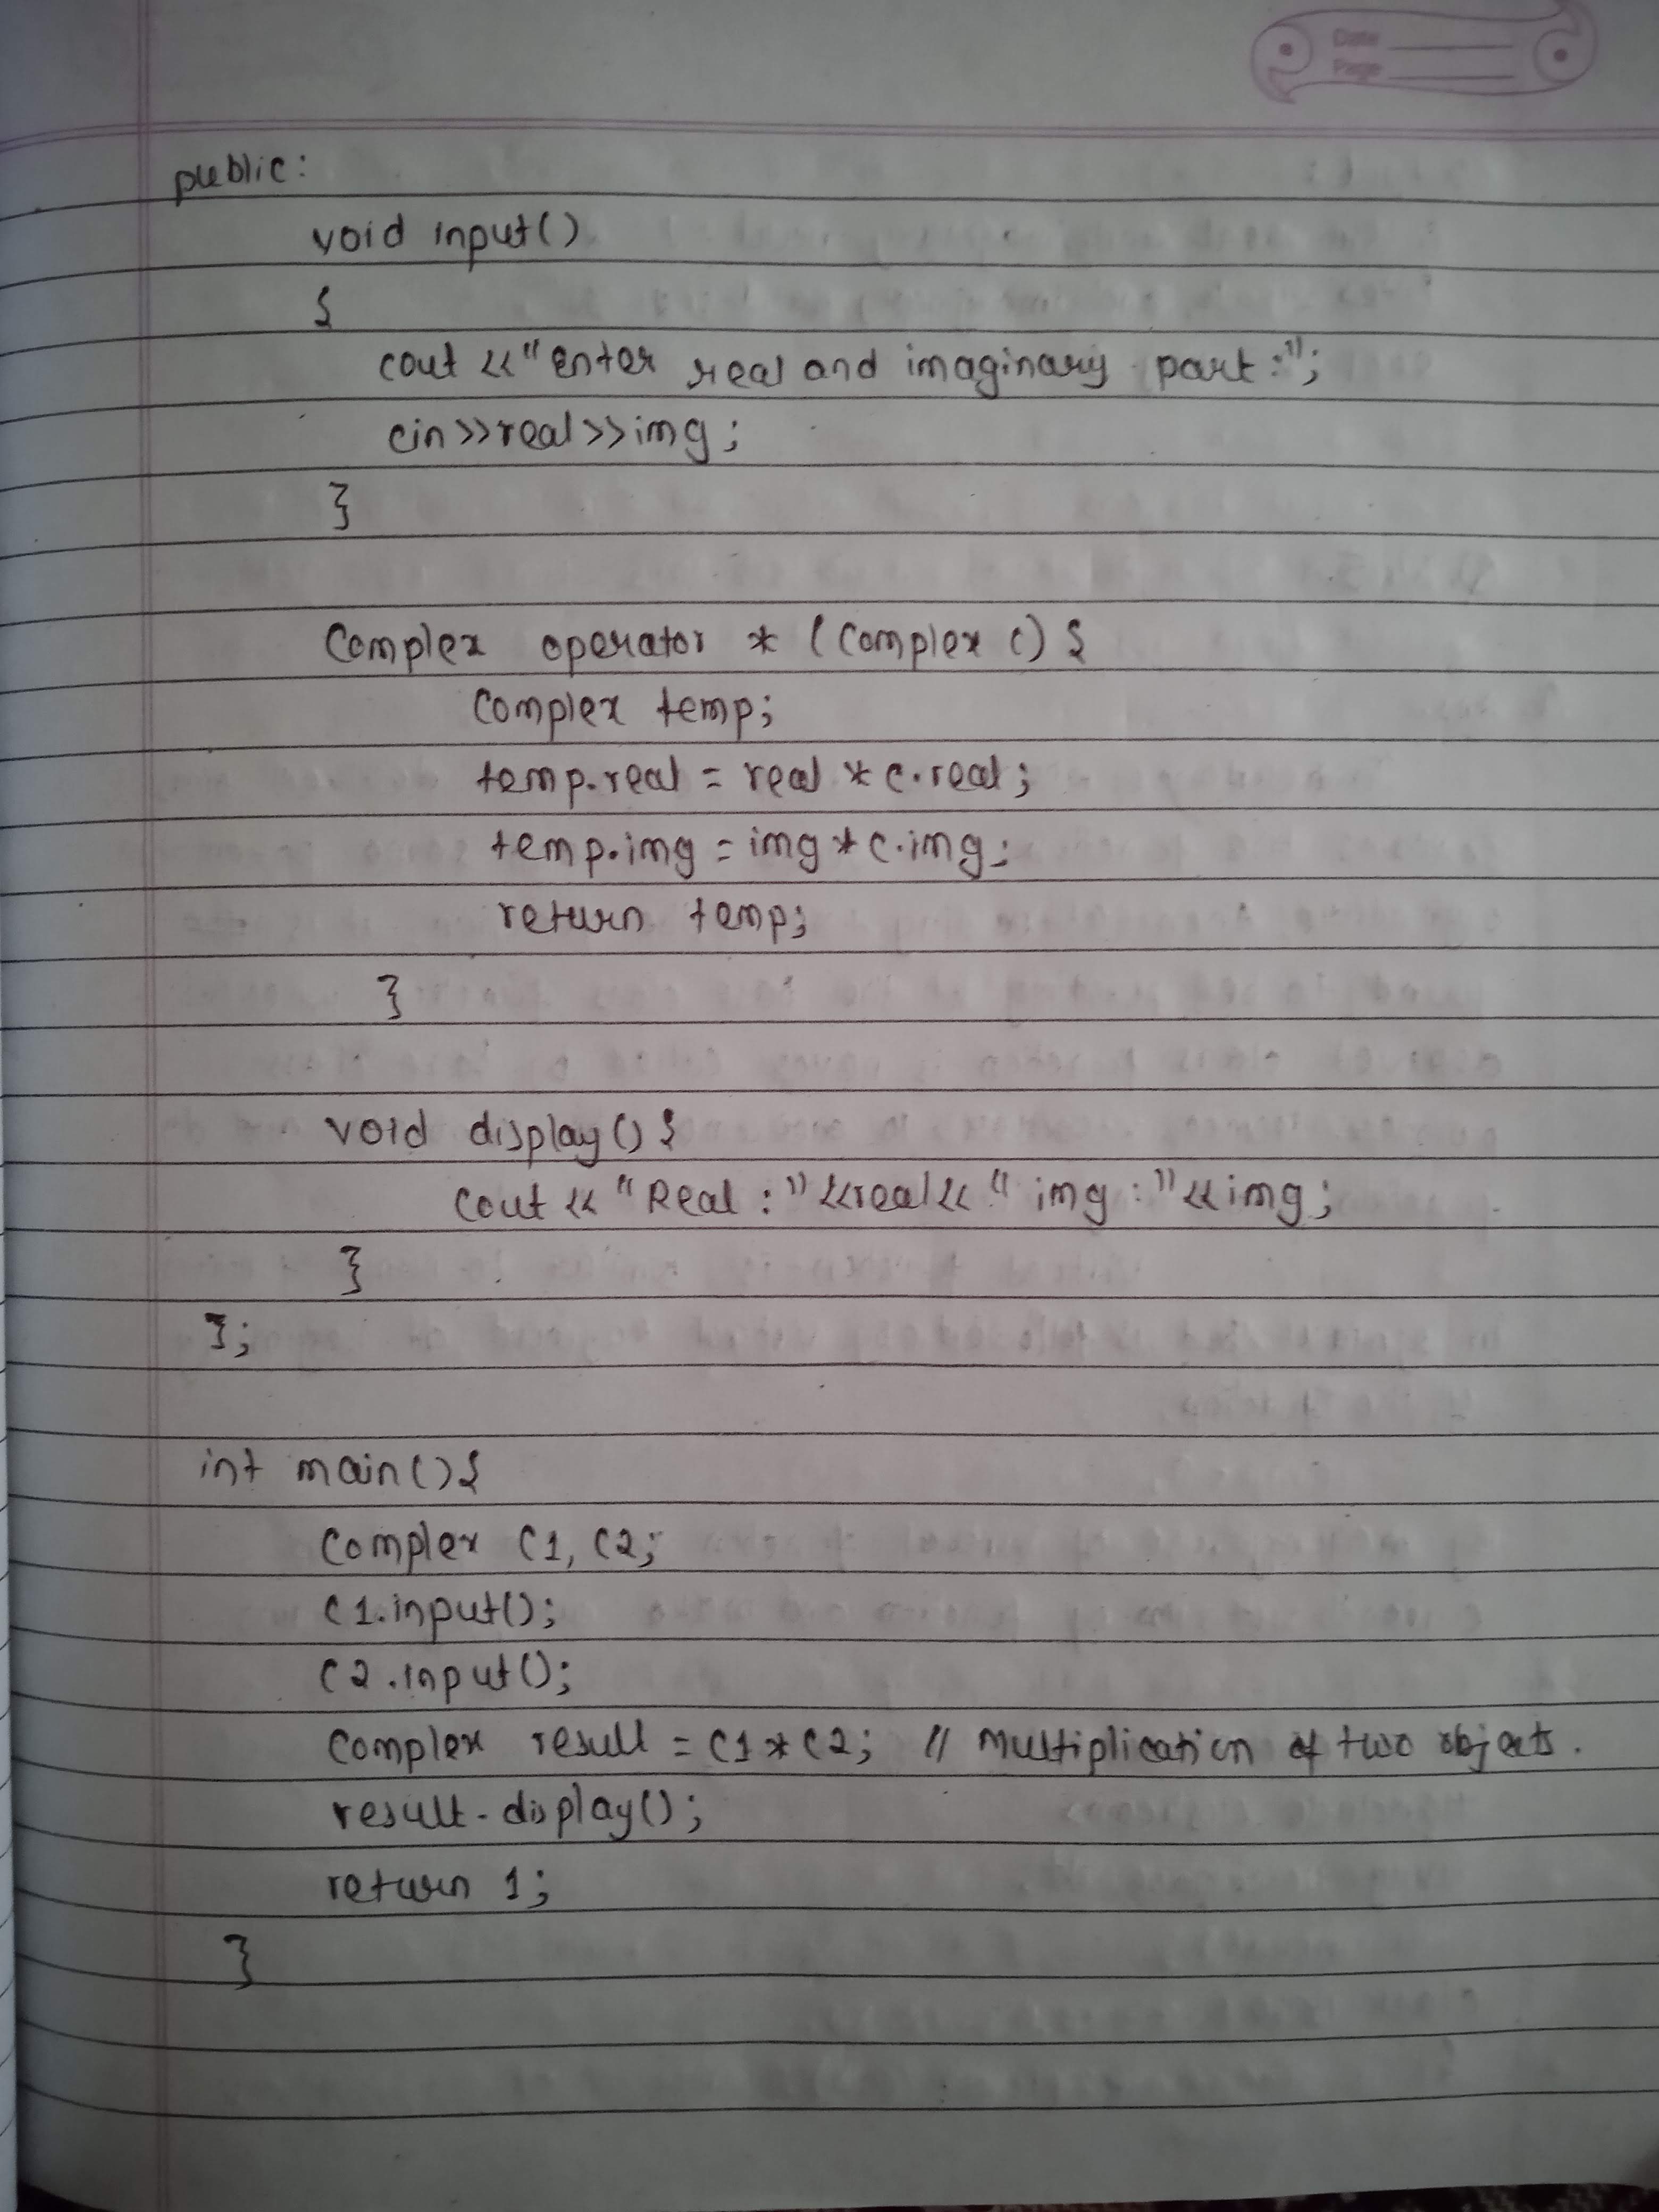 Date
Page
public:
void input()
{
cout <<"enter real and imaginary part:";
cin>>real>>img;
}
Complex operator * (Complex c) {
Complex temp;
temp.real = real * c.real;
temp.img = img * c.img;
return temp;
}
void display() {
cout << "Real :"<<real<< " img :"<<img;
}
};
int main(){
Complex C1, C2;
C1.input();
C2.input();
Complex result = C1*C2; // Multiplication of two objects.
result.display();
return 1;
}